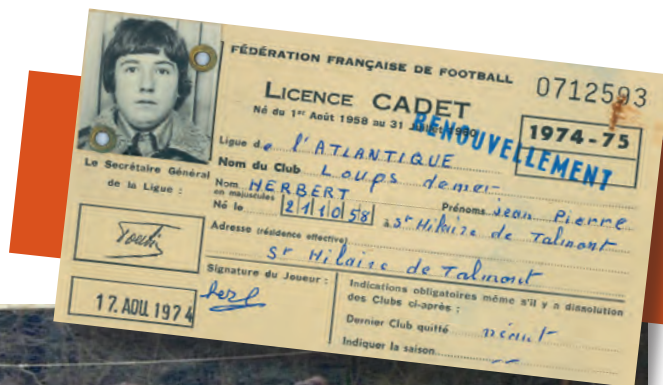 FÉDÉRATION FRANÇAISE DE FOOTBALL
0712593
LICENCE CADET
Né du 1er Août 1958 au 31
RENOUVELLEMENT
1974-75
Ligue de l'ATLANTIQUE
Nom du Club Loups demer
Nom en majuscules HERBERT Prénoms Jean Pierre
Né le 21 10 58 à St Hilaire de Talmont
Adresse (résidence effective)
St Hilaire de Talmont
Le Secrétaire Général
de la Ligue :
17. AOU 1974
Signature du Joueur :
Indications obligatoires même s'il y a dissolution
des Clubs ci-après :
Dernier Club quitté néant
Indiquer la saison